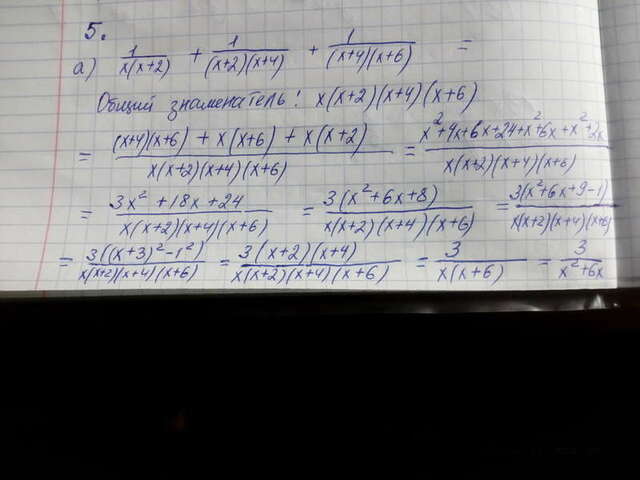 5.
а) 1/(x(x+2)) + 1/((x+2)(x+4)) + 1/((x+4)(x+6)) =
Общий знаменатель: x(x+2)(x+4)(x+6)
= ((x+4)(x+6) + x(x+6) + x(x+2))/(x(x+2)(x+4)(x+6)) = (x²+4x+6x+24+x²+6x+x²+2x)/(x(x+2)(x+4)(x+6))
= (3x²+18x+24)/(x(x+2)(x+4)(x+6)) = (3(x²+6x+8))/(x(x+2)(x+4)(x+6)) = (3(x²+6x+9-1))/(x(x+2)(x+4)(x+6))
= (3((x+3)²-1²))/(x(x+2)(x+4)(x+6)) = (3(x+2)(x+4))/(x(x+2)(x+4)(x+6)) = 3/(x(x+6)) = 3/(x²+6x)